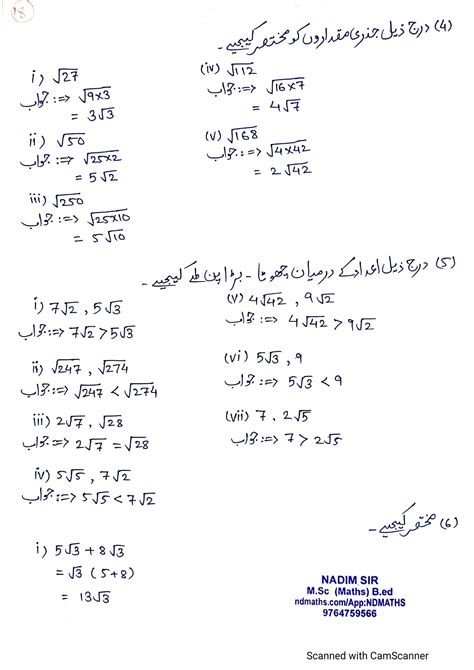 18
(4) درج ذیل جذری مقداروں کو مختصر کیجیے۔
i) √27
جواب :⇒ √9×3
= 3√3
ii) √50
جواب :⇒ √25×2
= 5√2
iii) √250
جواب :⇒ √25×10
= 5√10
(iv) √112
جواب :⇒ √16×7
= 4√7
(v) √168
جواب :⇒ √4×42
= 2√42
(5) درج ذیل اعداد کے درمیان چھوٹا - بڑا پن طے کیجیے۔
i) 7√2 , 5√3
جواب :⇒ 7√2 > 5√3
ii) √247 , √274
جواب :⇒ √247 < √274
iii) 2√7 , √28
جواب :⇒ 2√7 = √28
iv) 5√5 , 7√2
جواب :⇒ 5√5 < 7√2
(v) 4√42 , 9√2
جواب :⇒ 4√42 > 9√2
(vi) 5√3 , 9
جواب :⇒ 5√3 < 9
(vii) 7 , 2√5
جواب :⇒ 7 > 2√5
(6) مختصر کیجیے۔
i) 5√3 + 8√3
= √3 (5+8)
= 13√3
NADIM SIR
M.Sc (Maths) B.ed
ndmaths.com/App:NDMATHS
9764759566
Scanned with CamScanner